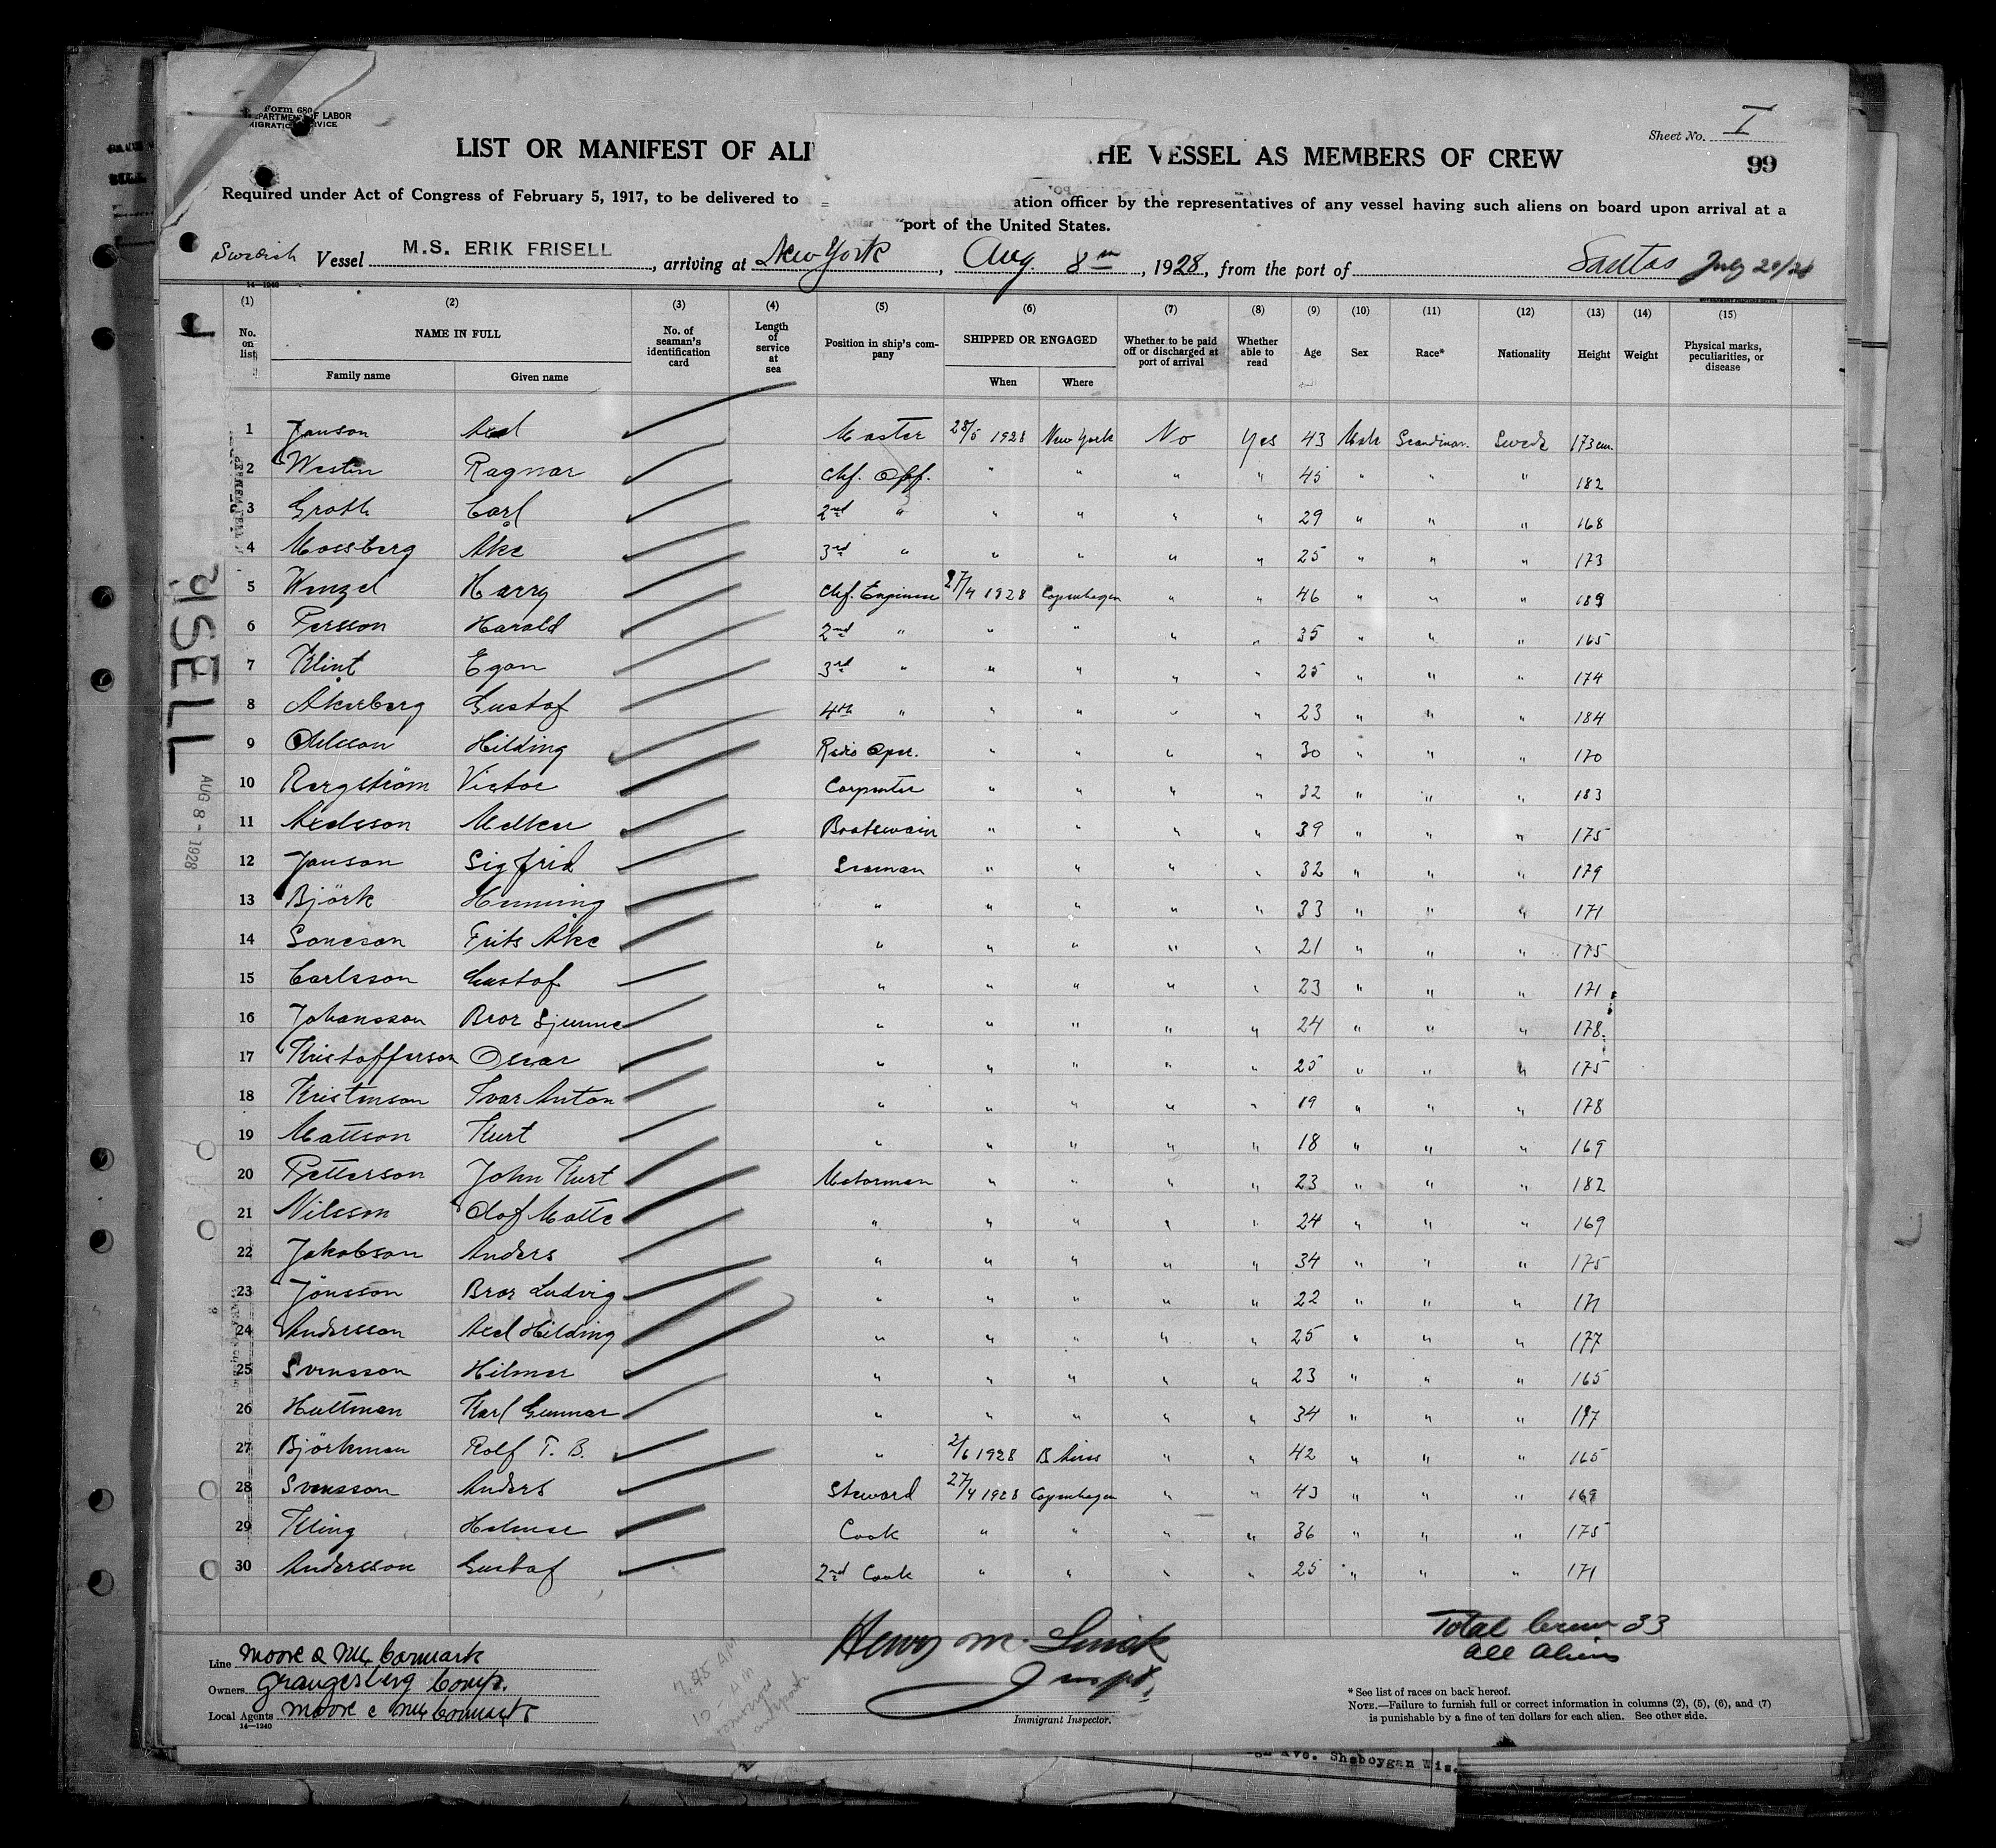 Form 680
DEPARTMENT OF LABOR
IMMIGRATION SERVICE
Sheet No. I
99
LIST OR MANIFEST OF ALI HE VESSEL AS MEMBERS OF CREW
Required under Act of Congress of February 5, 1917, to be delivered to ation officer by the representatives of any vessel having such aliens on board upon arrival at a
port of the United States.
Swedish Vessel M.S. ERIK FRISELL, arriving at New York, Aug. 8th, 1928, from the port of Santos July 20/28
14—1240
(1) (2) (3) (4) (5) (6) (7) (8) (9) (10) (11) (12) (13) (14) (15)
No. on list NAME IN FULL Family name Given name No. of seaman's identification card Length of service at sea Position in ship's company SHIPPED OR ENGAGED When Where Whether to be paid off or discharged at port of arrival Whether able to read Age Sex Race* Nationality Height Weight Physical marks, peculiarities, or disease
1 Janson Axel Master 28/5 1928 New York No Yes 43 Male Scandinav. Swede 173 cm.
2 Westin Ragnar Chf. Off. " " " " 45 " " " 182
3 Groth Carl 2nd " " " " " 29 " " " 168
4 Mossberg Åke 3rd " " " " " 25 " " " 173
5 Wenzel Harry Chf. Engineer 27/4 1928 Copenhagen " " 46 " " " 189
6 Persson Harald 2nd " " " " " 35 " " " 165
7 Klint Egon 3rd " " " " " 25 " " " 174
8 Åkerberg Gustof 4th " " " " " 23 " " " 184
9 Olsson Hilding Radio Oper. " " " " 30 " " " 170
10 Bergström Victor Carpenter " " " " 32 " " " 183
11 Axelsson Melker Boatswain " " " " 39 " " " 175
12 Janson Sigfrid Seaman " " " " 32 " " " 179
13 Björk Henning " " " " " 33 " " " 171
14 Soneson Frits Åke " " " " " 21 " " " 175
15 Carlsson Gustof " " " " " 23 " " " 171
16 Johansson Bror " " " " " 24 " " " 178
17 Kristofferson Oscar " " " " " 25 " " " 175
18 Kristenson Ivar Anton " " " " " 19 " " " 178
19 Mattson Kurt " " " " " 18 " " " 169
20 Petterson John Kurt Motorman " " " " 23 " " " 182
21 Nilsson Olof Matte " " " " " 24 " " " 169
22 Jakobson Anders " " " " " 34 " " " 175
23 Jönsson Bror Ludvig " " " " " 22 " " " 171
24 Andersson Axel Hilding " " " " " 25 " " " 177
25 Svensson Hilmer " " " " " 23 " " " 165
26 Hultman Karl Gunnar " " " " " 34 " " " 177
27 Björkman Rolf T. B. " 2/6 1928 B Aires " " 42 " " " 165
28 Svensson Anders Steward 27/4 1928 Copenhagen " " 43 " " " 169
29 Kling Helmer Cook " " " " 36 " " " 175
30 Andersson Gustaf 2nd Cook " " " " 25 " " " 171
ISELL
AUG 8 - 1928
Total Crew 33
All Aliens
Line Moore & McCormack
Owners Grangesberg Comp.
Local Agents Moore & McCormack
14—1240
7.45 AM
Henry M.
Inspt.
Immigrant Inspector.
* See list of races on back hereof.
NOTE.—Failure to furnish full or correct information in columns (2), (5), (6), and (7)
is punishable by a fine of ten dollars for each alien. See other side.
Ave. Sheboygan Wis.